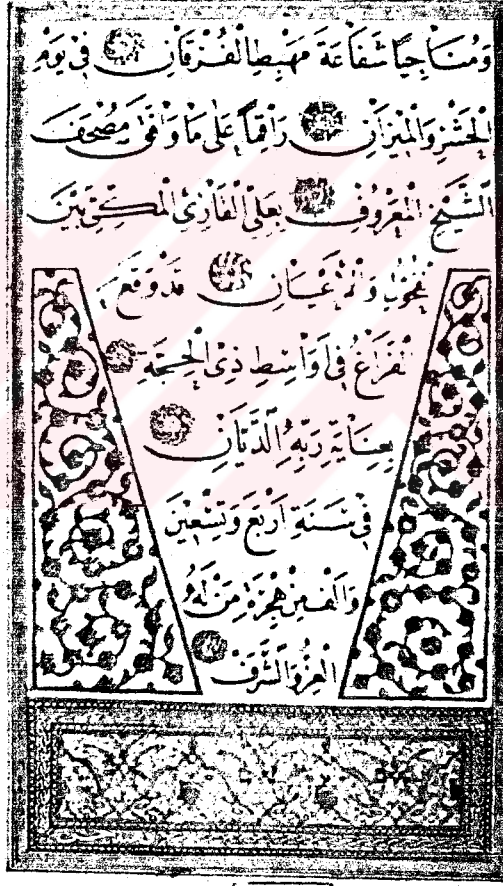 وَمُنَاجِيًا شَفَاعَةَ مَهْبِطِ الْفُرْقَانِ فِى يَوْمِ
الْحَشْرِ وَالْمِيزَانِ رَاقِمًا عَلَى مَا وَافَقَ مُصْحَفَ
الشَّيْخِ الْمَعْرُوفِ بِعَلِىِّ الْقَارِئِ الْمَكِّىِّ بَيْنَ
وَالْاَعْيَانِ قَدْ وَقَعَ
الْفَرَاغُ فِى اَوَاسِطِ ذِى الْحِجَّةِ
بِعِنَايَةِ رَبِّهِ الدَّيَّانِ
فِى سَنَةِ اَرْبَعَ وَتِسْعِينَ
وَاَلْفٍ مِنْ هِجْرَةِ مَنْ لَهُ
الْعِزُّ وَالشَّرَفُ